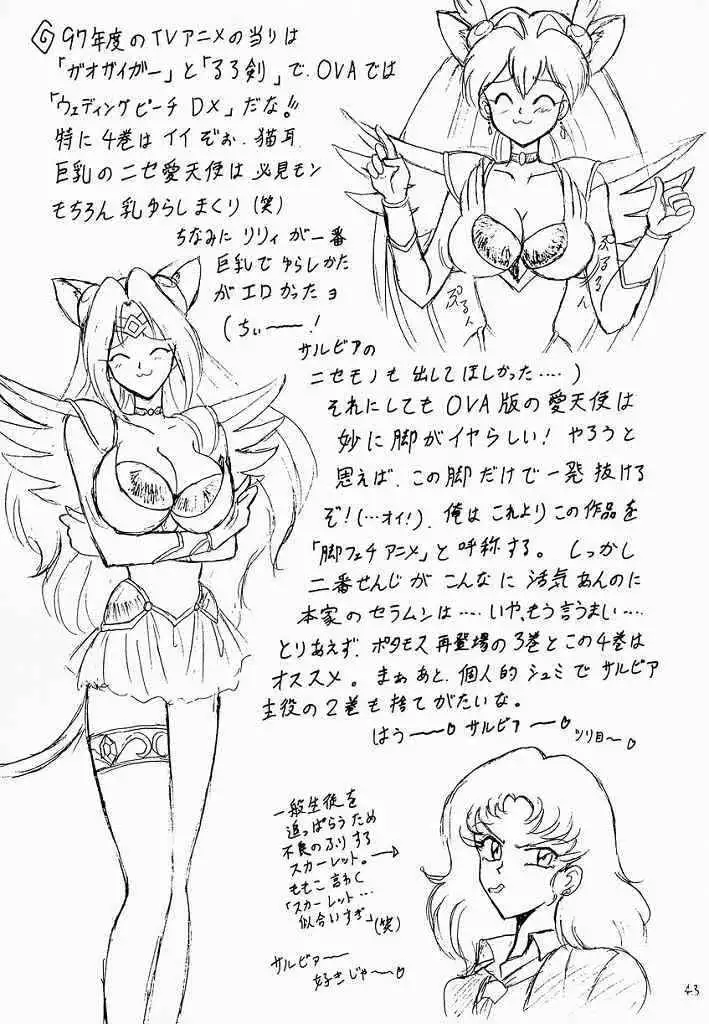 97年度のTVアニメの当りは
「ガオガイガー」と「るろ剣」で、OVAでは
「ウェディングピーチDX」だな!!
特に4巻はイイぞぉ、猫耳
巨乳のニセ愛天使は必見モン
もちろん乳ゆらしまくり(笑)
ちなみにリリィが一番
巨乳でゆらしかた
がエロかったョ
(ちぃ〜〜!
サルビアの
ニセモノも出してほしかった……)
それにしてもOVA版の愛天使は
妙に脚がイヤらしい!やろうと
思えば、この脚だけで一発抜ける
ぞ!(…オイ!)、俺はこれよりこの作品を
「脚フェチアニメ」と呼称する。しっかし
二番せんじがこんなに活気あんのに
本家のセラムンは……いや、もう言うまい……
とりあえず、ポタモス再登場の3巻とこの4巻は
オススメ。まぁあと、個人的シュミでサルビア
主役の2巻も捨てがたいな。
はう〜〜♡サルビァ〜♡
ツリ目〜♡
ぷるるん
ぷるん
一般生徒を
追っぱらうため
不良のふりする
スカーレット。→
ももこ言わく
「スカーレット…
似合いすぎ」(笑)
サルビァ〜〜
好きじゃ〜〜♡
43